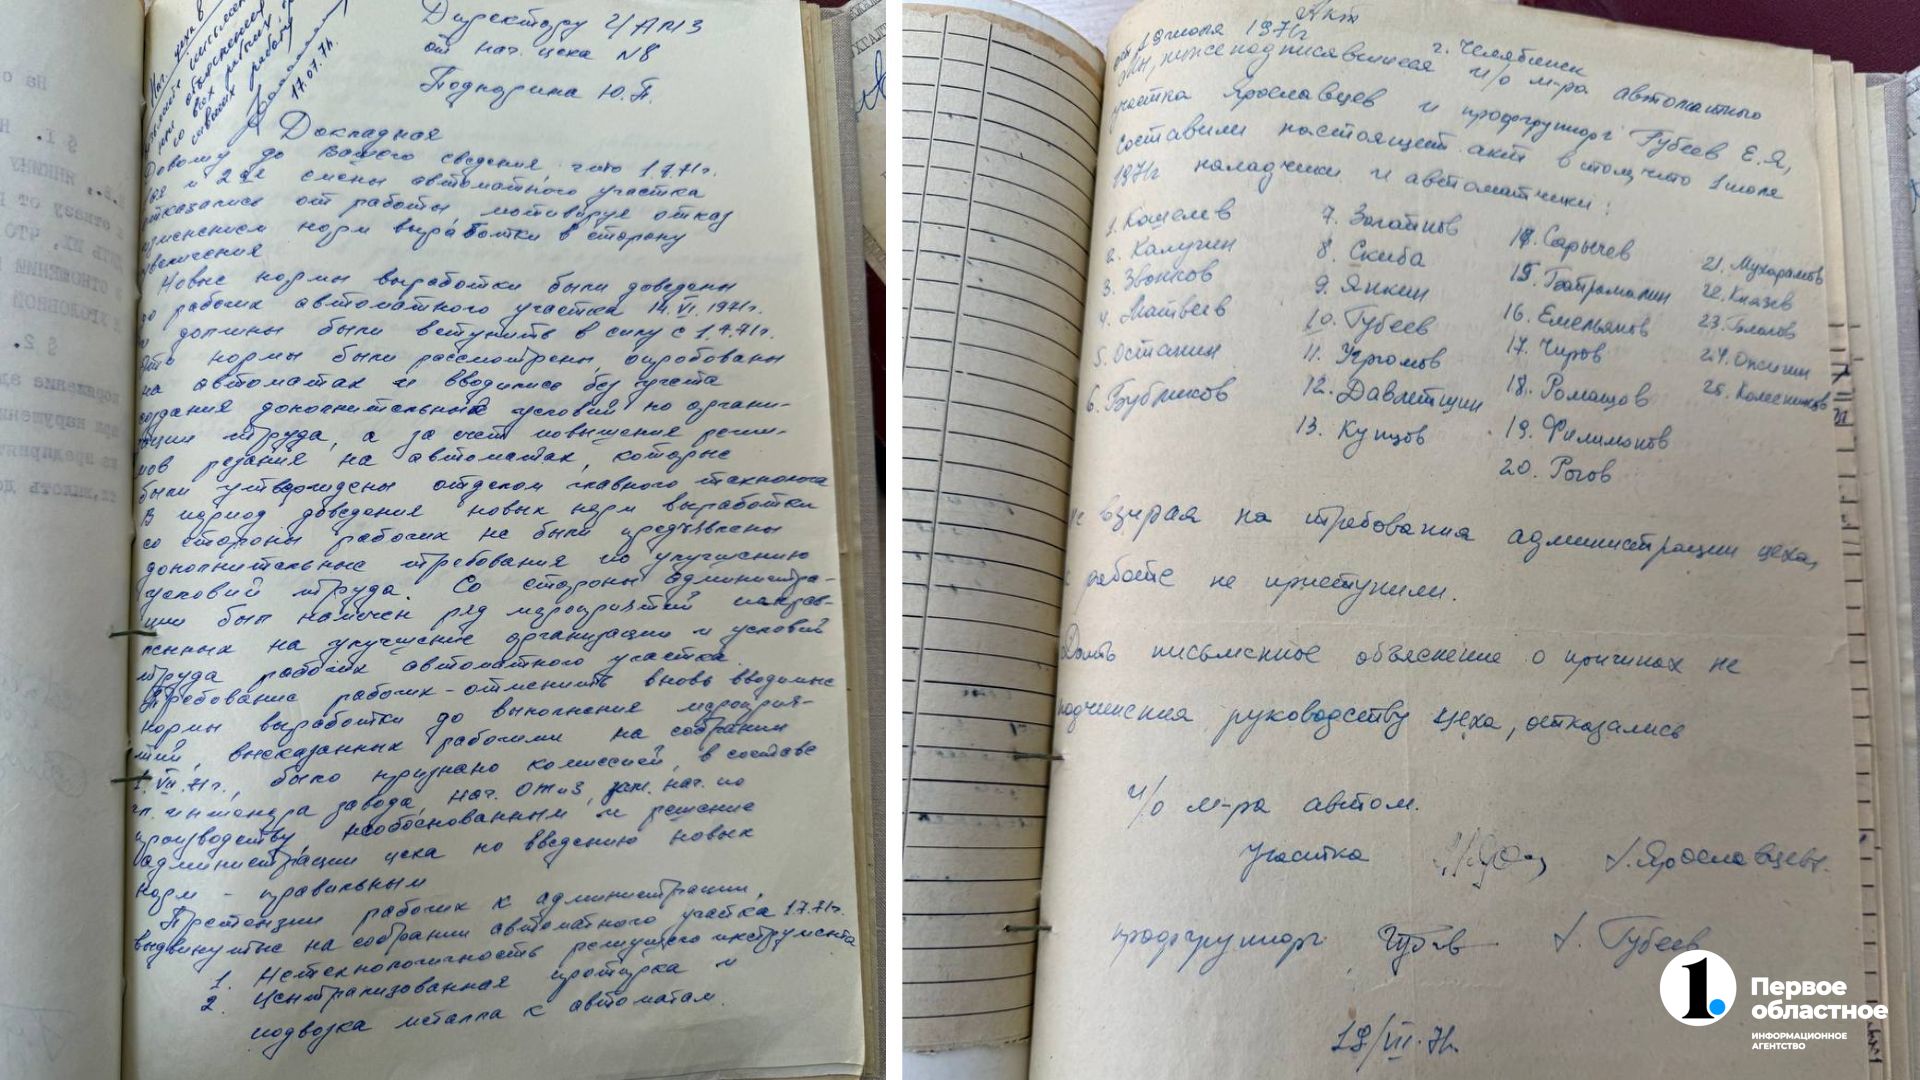 Нач. цеха 8
17.07.71.
Директору ЧАМЗ
от нач. цеха N8
Подкорина Ю.П.
Докладная
Довожу до Вашего сведения, что 1.7.71г.
и 2ая смены автоматного участка
отказались от работы, мотивируя отказ
изменением норм выработки в сторону
увеличения
Новые нормы выработки были доведены
до рабочих автоматного участка 14.VI.1971г.
и должны были вступить в силу с 1.7.71г.
Эти нормы были рассмотрены, опробованы
на автоматах и вводились без учета
создания дополнительных условий по органи-
зации труда, а за счет повышения режи-
мов резания на автоматах, которые
были утверждены отделом главного технолога
В период доведения новых норм выработки
со стороны рабочих не были предъявлены
дополнительные требования по улучшению
условий труда. Со стороны администра-
ции был намечен ряд мероприятий направ-
ленных на улучшение организации и условий
труда рабочих автоматного участка.
Требование рабочих - отменить вновь вводимые
нормы выработки до выполнения мероприя-
тий, высказанных рабочими на собрании
1.VII.71г., было признано комиссией, в составе
гл. инженера завода, нач. ОТиЗ, зам. нач. по
производству необоснованным и решение
администрации цеха по введению новых
норм - правильным
Претензии рабочих к администрации,
выдвинутые на собрании автоматного участка 1.7.71г.
1. Нетехнологичность режущего инструмента
2. Централизованная протирка и
подвозка металла к автоматам.
Акт
от 19 июля 1971г
г. Челябинск
Мы, нижеподписавшиеся и/о м-ра автоматного
участка Ярославцев и профгрупорг Губеев Е.Я,
составили настоящий акт в том, что 1 июля
1971г наладчики и автоматчики:
1. Кошелев
2. Калугин
3. Звонков
4. Матвеев
5. Останин
6. Бубликов
7. Загайнов
8. Скиба
9. Янкин
10. Губеев
11.
12. Давлетшин
13. Купцов
14. Сарычев
15.
16. Емельянов
17. Чиров
18. Ромащов
19. Филимонов
20. Рогов
21. Мухарамов
22. Князев
23.
24.
25. Колесников
не взирая на требования администрации цеха,
к работе не приступили.
Дать письменное объяснение о причинах не
подчинения руководству цеха, отказались
И/о м-ра автом.
участка /. Ярославцев/.
профгрупорг: Губеев /. Губеев
19/VII.71г.
1.
Первое
областное
ИНФОРМАЦИОННОЕ
АГЕНТСТВО